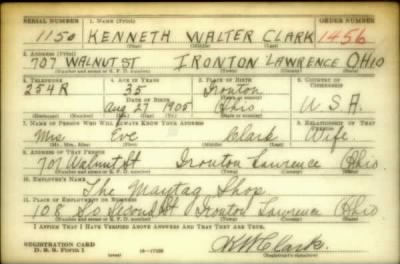 SERIAL NUMBER 1. NAME (Print) ORDER NUMBER
1150 KENNETH WALTER CLARK 1456
(First) (Middle) (Last)
2. ADDRESS (Print)
707 WALNUT ST IRONTON LAWRENCE OHIO
(Number and street or R. F. D. number) (Town) (County) (State)
3. TELEPHONE 4. AGE IN YEARS 5. PLACE OF BIRTH 6. COUNTRY OF CITIZENSHIP
254R 35 Ironton
DATE OF BIRTH (Town or county)
Aug 27 1905 Ohio U.S.A.
(Exchange) (Number) (Mo.) (Day) (Yr.) (State or country)
7. NAME OF PERSON WHO WILL ALWAYS KNOW YOUR ADDRESS 8. RELATIONSHIP OF THAT PERSON
Mrs Eve Clark Wife
(Mr., Mrs., Miss) (First) (Middle) (Last)
9. ADDRESS OF THAT PERSON
707 Walnut St Ironton Lawrence Ohio
(Number and street or R. F. D. number) (Town) (County) (State)
10. EMPLOYER'S NAME
The Maytag Shop
11. PLACE OF EMPLOYMENT OR BUSINESS
108 So Second St Ironton Lawrence Ohio
(Number and street or R. F. D. number) (Town) (County) (State)
I AFFIRM THAT I HAVE VERIFIED ABOVE ANSWERS AND THAT THEY ARE TRUE.
REGISTRATION CARD
D. S. S. Form 1 K W Clark
(over) (Registrant's signature)